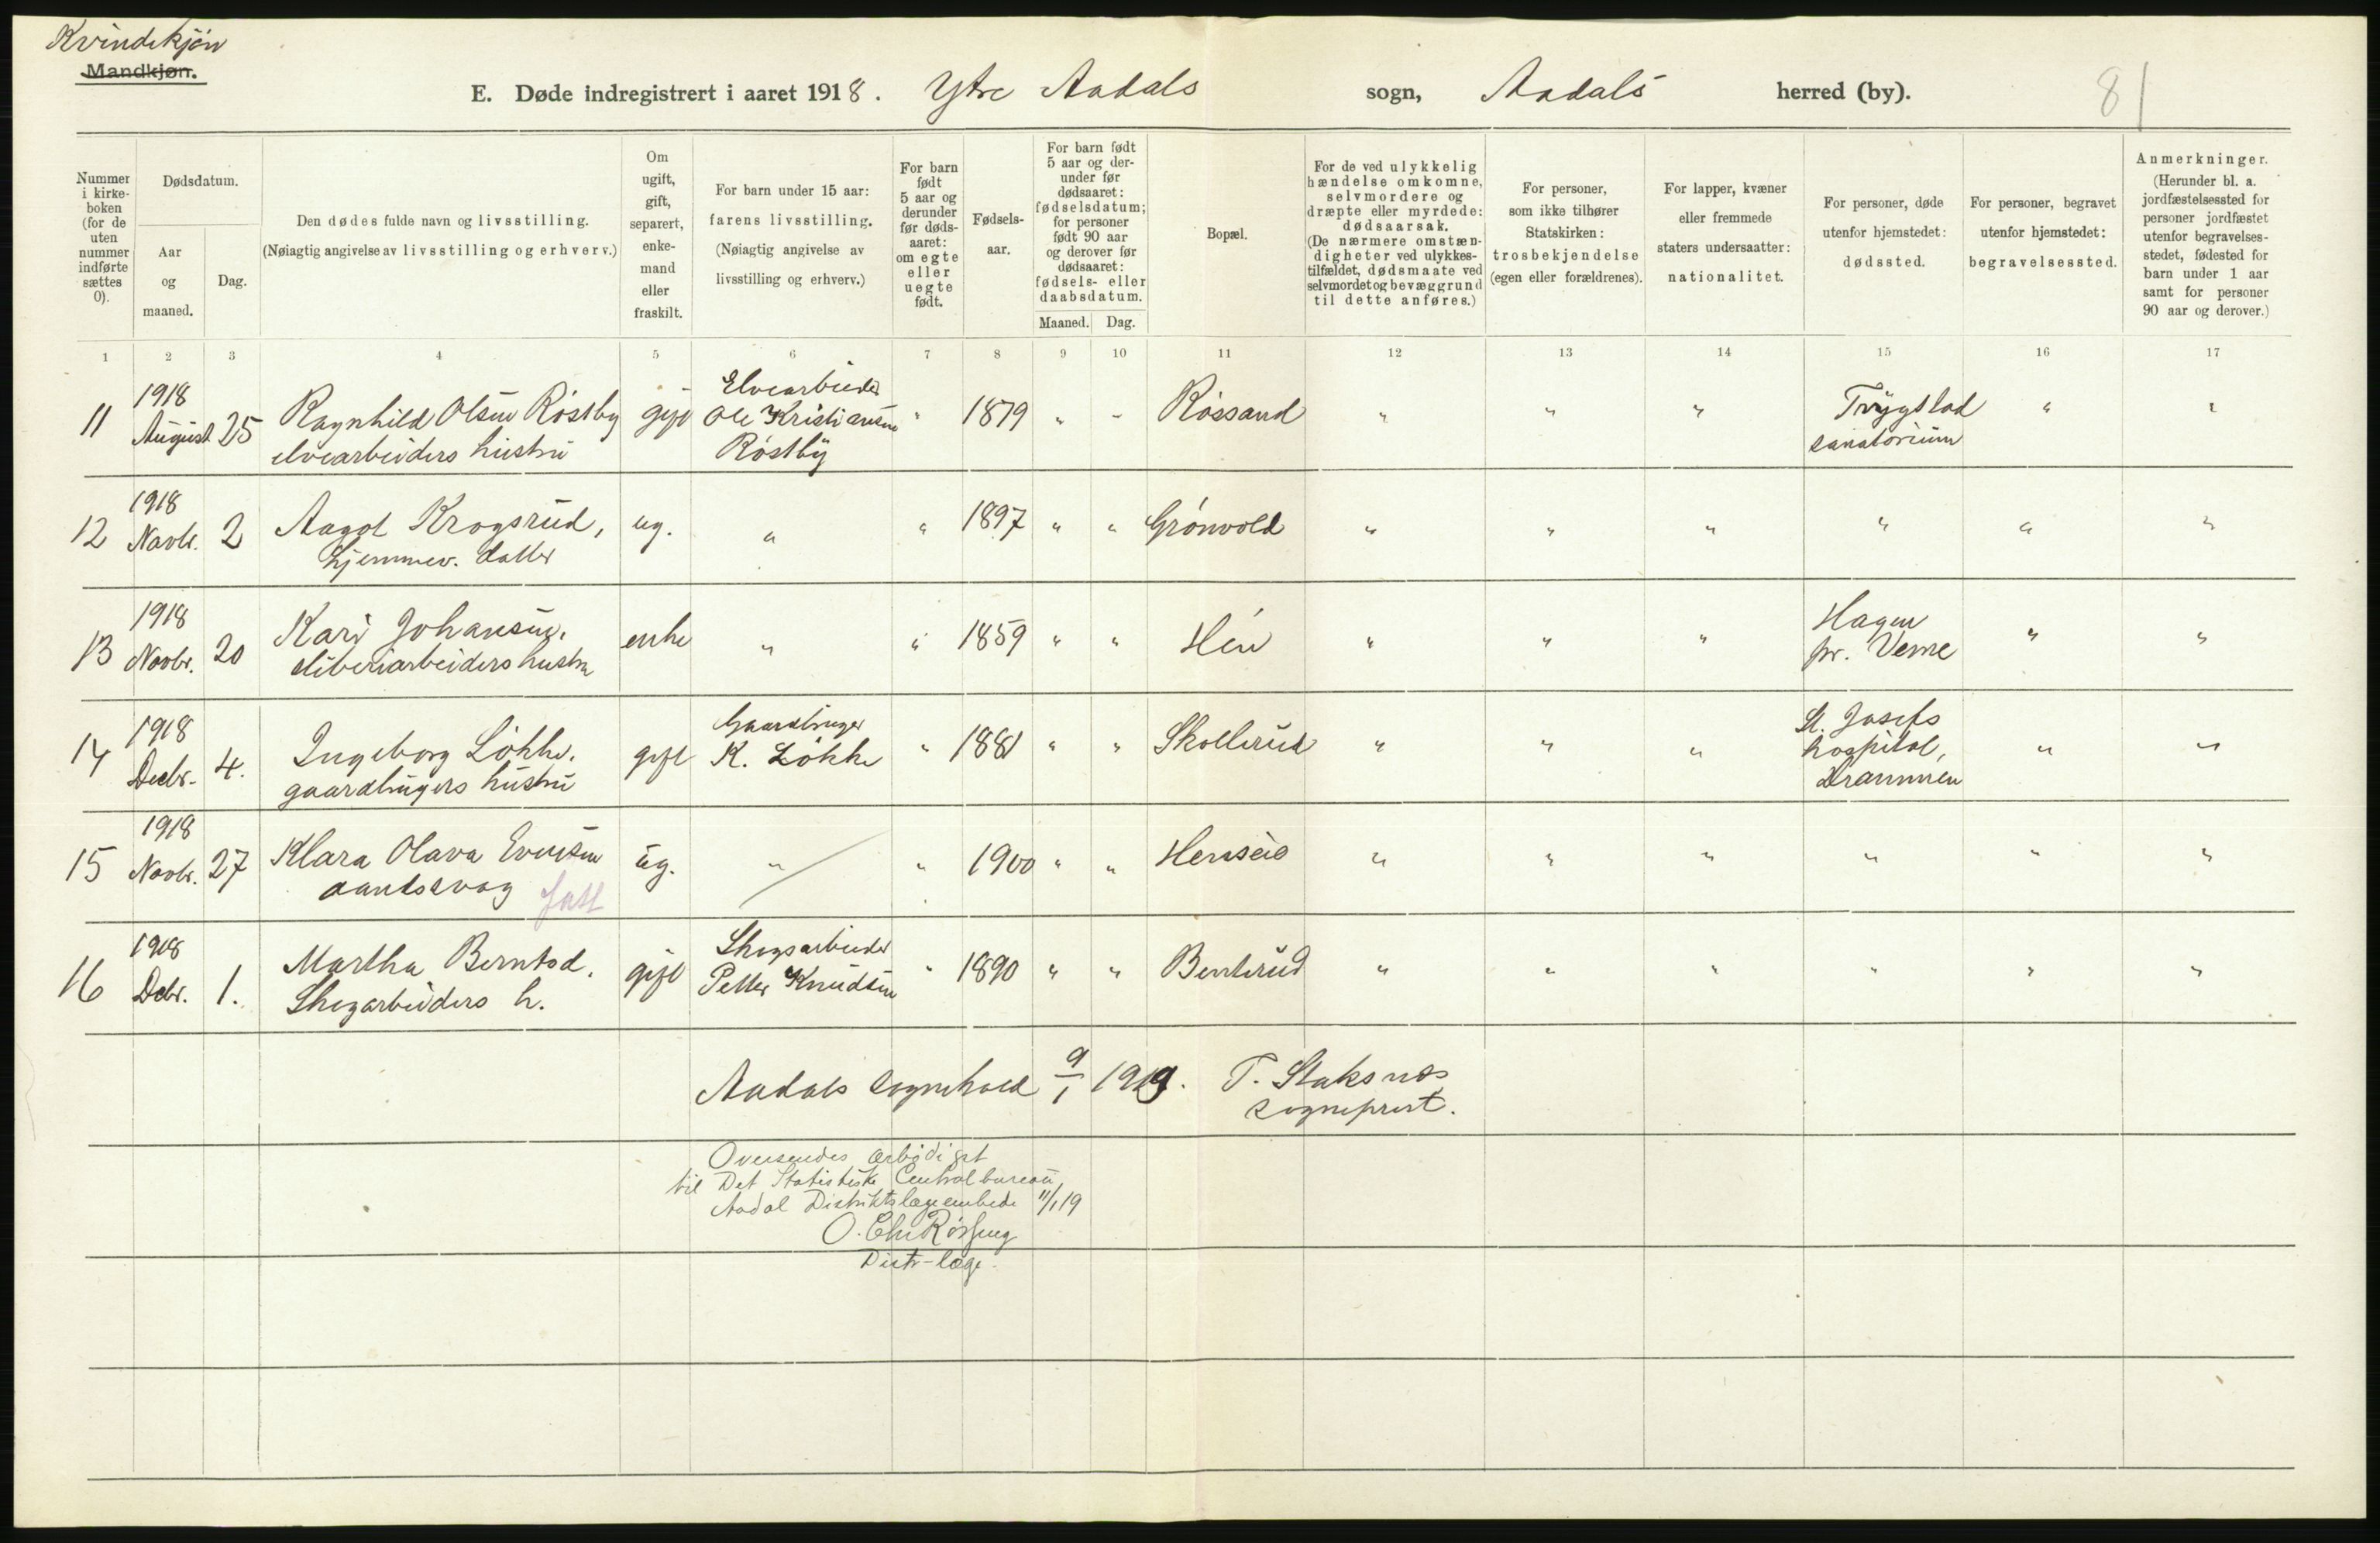 Kvindekjøn
Mandkjøn.
E. Døde indregistrert i aaret 1918. Ytre Aadals sogn, Aadals herred (by). 81
Nummer i kirke- boken (for de uten nummer indførte sættes 0).
Dødsdatum.
Aar og maaned.
Dag.
Den dødes fulde navn og livsstilling.
(Nøiagtig angivelse av livsstilling og erhverv.)
Om ugift, gift, separert, enke- mand eller fraskilt.
For barn under 15 aar: farens livsstilling. (Nøiagtig angivelse av livsstilling og erhverv.)
For barn født 5 aar og derunder før døds- aaret: om egte eller uegte født.
Fødsels- aar.
For barn født 5 aar og der- under før dødsaaret: fødselsdatum; for personer født 90 aar og derover før dødsaaret: fødsels- eller daabsdatum.
Maaned. Dag.
Bopæl.
For de ved ulykkelig hændelse omkomne, selvmordere og dræpte eller myrdede: dødsaarsak. (De nærmere omstæn- digheter ved ulykkes- tilfældet, dødsmaate ved selvmordet og bevæggrund til dette anføres.)
For personer, som ikke tilhører Statskirken: trosbekjendelse (egen eller forældrenes).
For lapper, kvæner eller fremmede staters undersaatter: nationalitet.
For personer, døde utenfor hjemstedet: dødssted.
For personer, begravet utenfor hjemstedet: begravelsessted.
Anmerkninger. (Herunder bl. a. jordfæstelsessted for personer jordfæstet utenfor begravelses- stedet, fødested for barn under 1 aar samt for personer 90 aar og derover.)
1 2 3 4 5 6 7 8 9 10 11 12 13 14 15 16 17
11 1918 August 25 Ragnhild Olsen Röstby elvearbeiders hustru gift Elvearbeider Ole Kristiansen Röstby " 1879 " " Róssand " " " Trygstad sanatorium " "
12 1918 Novbr. 2 Aagot Krogsrud, hjemmev. datter ug. " " 1897 " " Grónvold " " " " " "
13 1918 Novbr. 20 Kari Johansen, sliberiarbeiders hustru enke " " 1859 " " Hén " " " Hagen pr. Veme " "
14 1918 Decbr. 4. Ingeborg Lökke, gaardbrugers hustru gift Gaardbruger K. Lökke " 1881 " " Skollerud " " " St. Josefs hospital, Drammen " "
15 1918 Novbr. 27 Klara Olava Evensen aandssvag ug. " " 1900 " " Henseie " " " " " "
16 1918 Debr. 1. Martha Berntsd. Skogarbeiders h. gift Skogsarbeider Petter Knudsen " 1890 " " Benterud " " " " " "
Aadals sognekald 9/1 1919. T. Staksnæs
sogneprest.
Oversendes ærbødigst
til Det Statistiske Centralbureau,
Aadal Distriktslægeembede 11/1 19
Distr-læge.